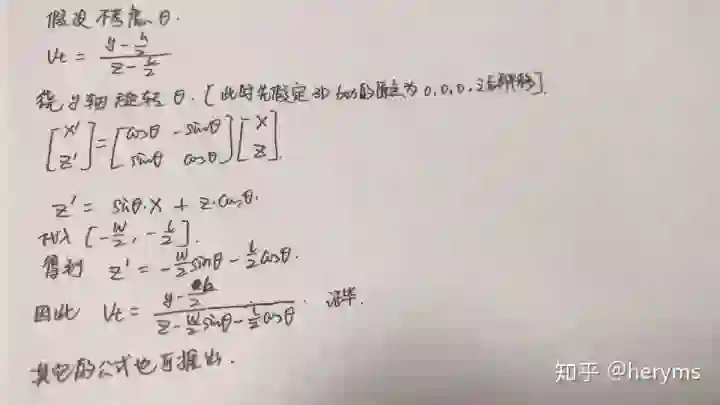 假设不考虑 θ.
Vt = (y - h/2) / (z - l/2)
绕y轴旋转 θ. [此时先假定3D box的原点为0,0,0,之后平移].
[x' z'] = [cosθ -sinθ sinθ cosθ] [x z].
z' = sinθ·x + z·cosθ.
代入 [-w/2, -l/2].
得到 z' = -w/2 sinθ - l/2 cosθ.
因此 Vt = (y - h/2) / (z - w/2 sinθ - l/2 cosθ) . 证毕.
其它的公式也可推出.
知乎 @heryms